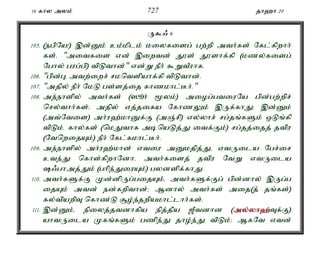 16 கால அலம்
727
தாஹா 20
ருகூஃ 6
105. (நபியே) இன்னும் உம்மிடம் மலைகளைப் பற்றி அவர்கள் கேட்கிறார்
கள், "அவைகளை என் இறைவன் தூள் தூளாக்கி (மணல்களைப்
போல் பரப்பி) விடுவான்" என்று நீர் கூறுவீராக.
106. "பின்பு அவற்றைச் சமவெளியாக்கி விடுவான்.
107. "அதில் நீர் மேடு பள்ளத்தை காணமாட்டீர்."
108. அந்நாளில் அவர்கள் (ஸூர் மூலம்) அழைப்பவரையே பின்பற்றிச்
செல்வார்கள்; அதில் எத்தகைய கோணலும் இருக்காது; இன்னும்
(அவ்வேளை) அர்ரஹ்மானுக்கு (அஞ்சி) எல்லாச் சப்தங்களும் ஒடுங்கி
விடும். கால்கள் (மெதுவாக அடியெடுத்து வைக்கும்) சப்தத்தைத் தவிர
(வேறெதையும்) நீர் கேட்கமாட்டீர்.
109. அந்நாளில் அர்ரஹ்மான் எவரை அனுமதித்து, எவருடைய பேச்சை
உவந்து கொள்கிறானோ, அவர்களைத் தவிர வேறு எவருடைய
ஷஃபாஅத்தும் (பரிந்துரையும்) பலனளிக்காது.
110. அவர்களுக்கு முன்னிருப்பதையும், அவர்களுக்குப் பின்னால் இருப்ப
தையும் அவன் நன்கறிவான்; ஆனால் அவர்கள் அதை(த் தங்கள்)
கல்வியறிவு கொண்டு சூழ்ந்தறியமாட்டார்கள்.
111. இன்னும், நிலைத்தவனாகிய நித்திய ஜீவனான (அல்லாஹ்வுக்கு)
யாவருடைய முகங்களும் பணிந்து தாழ்ந்து விடும்; ஆகவே எவன்